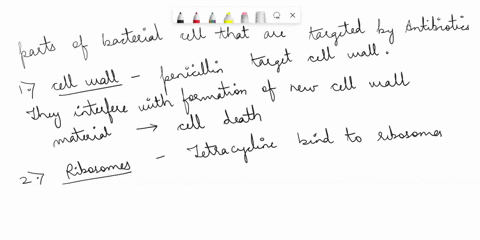 parts of bacterial cell that are targeted by Antibiotics
1:-) cell wall - penicillin target cell wall.
They interfere with formation of new cell wall
material → cell death
2:-) Ribosomes - Tetracycline bind to ribosomes